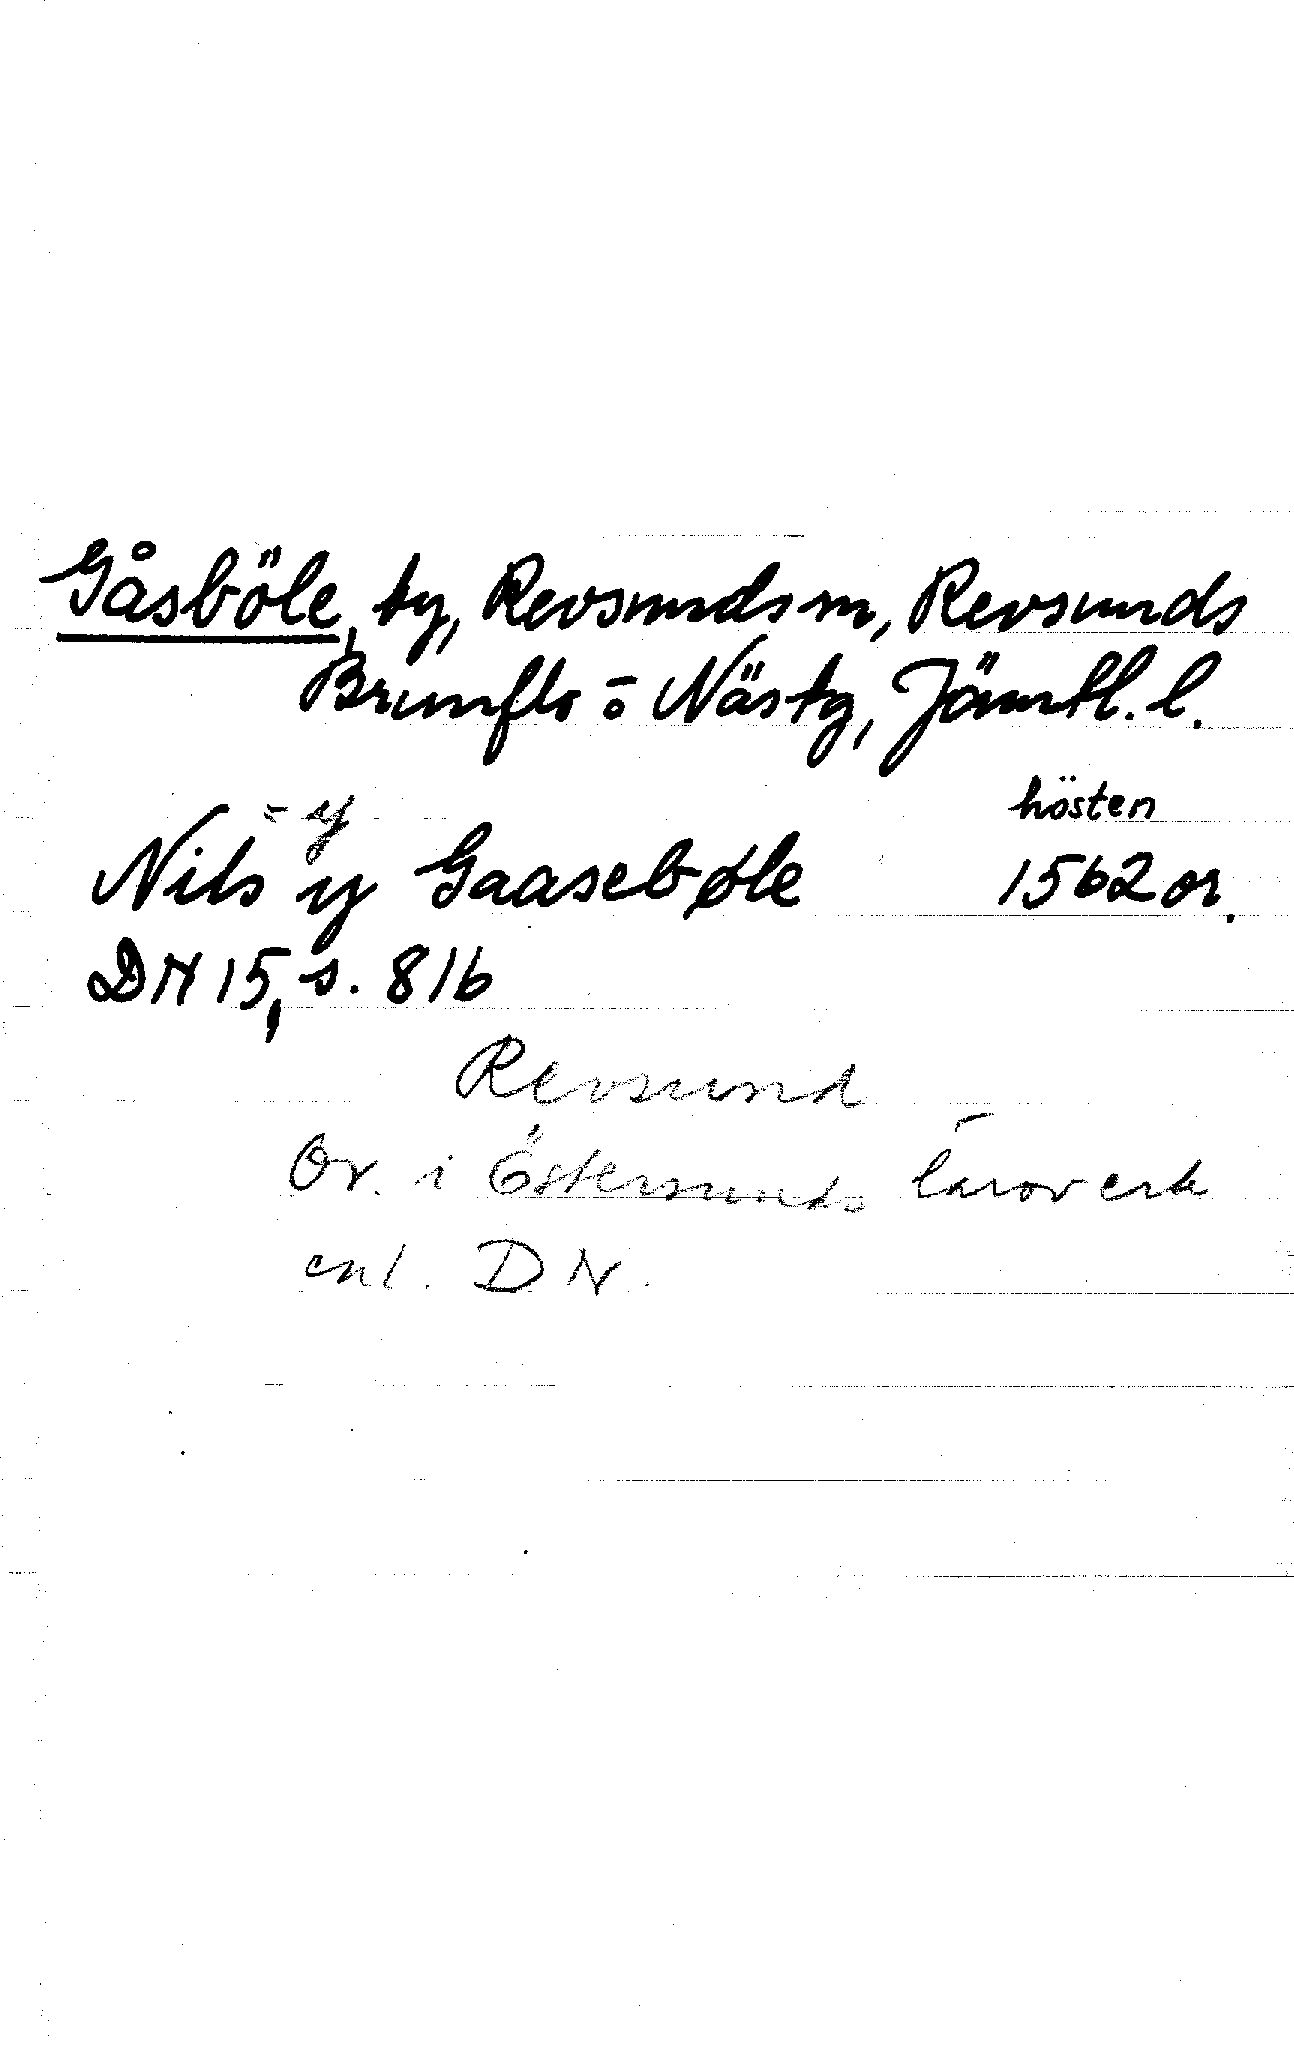 Gåsböle, by, Revsunds sn, Revsunds
Brunflo o Näs tg, Jämtl. l.
= ij
hösten
Nils ij Gaasebøle 1562 or.
DN 15, s. 816
Revsund
Or. i Östersunds läroverk
enl. DN.